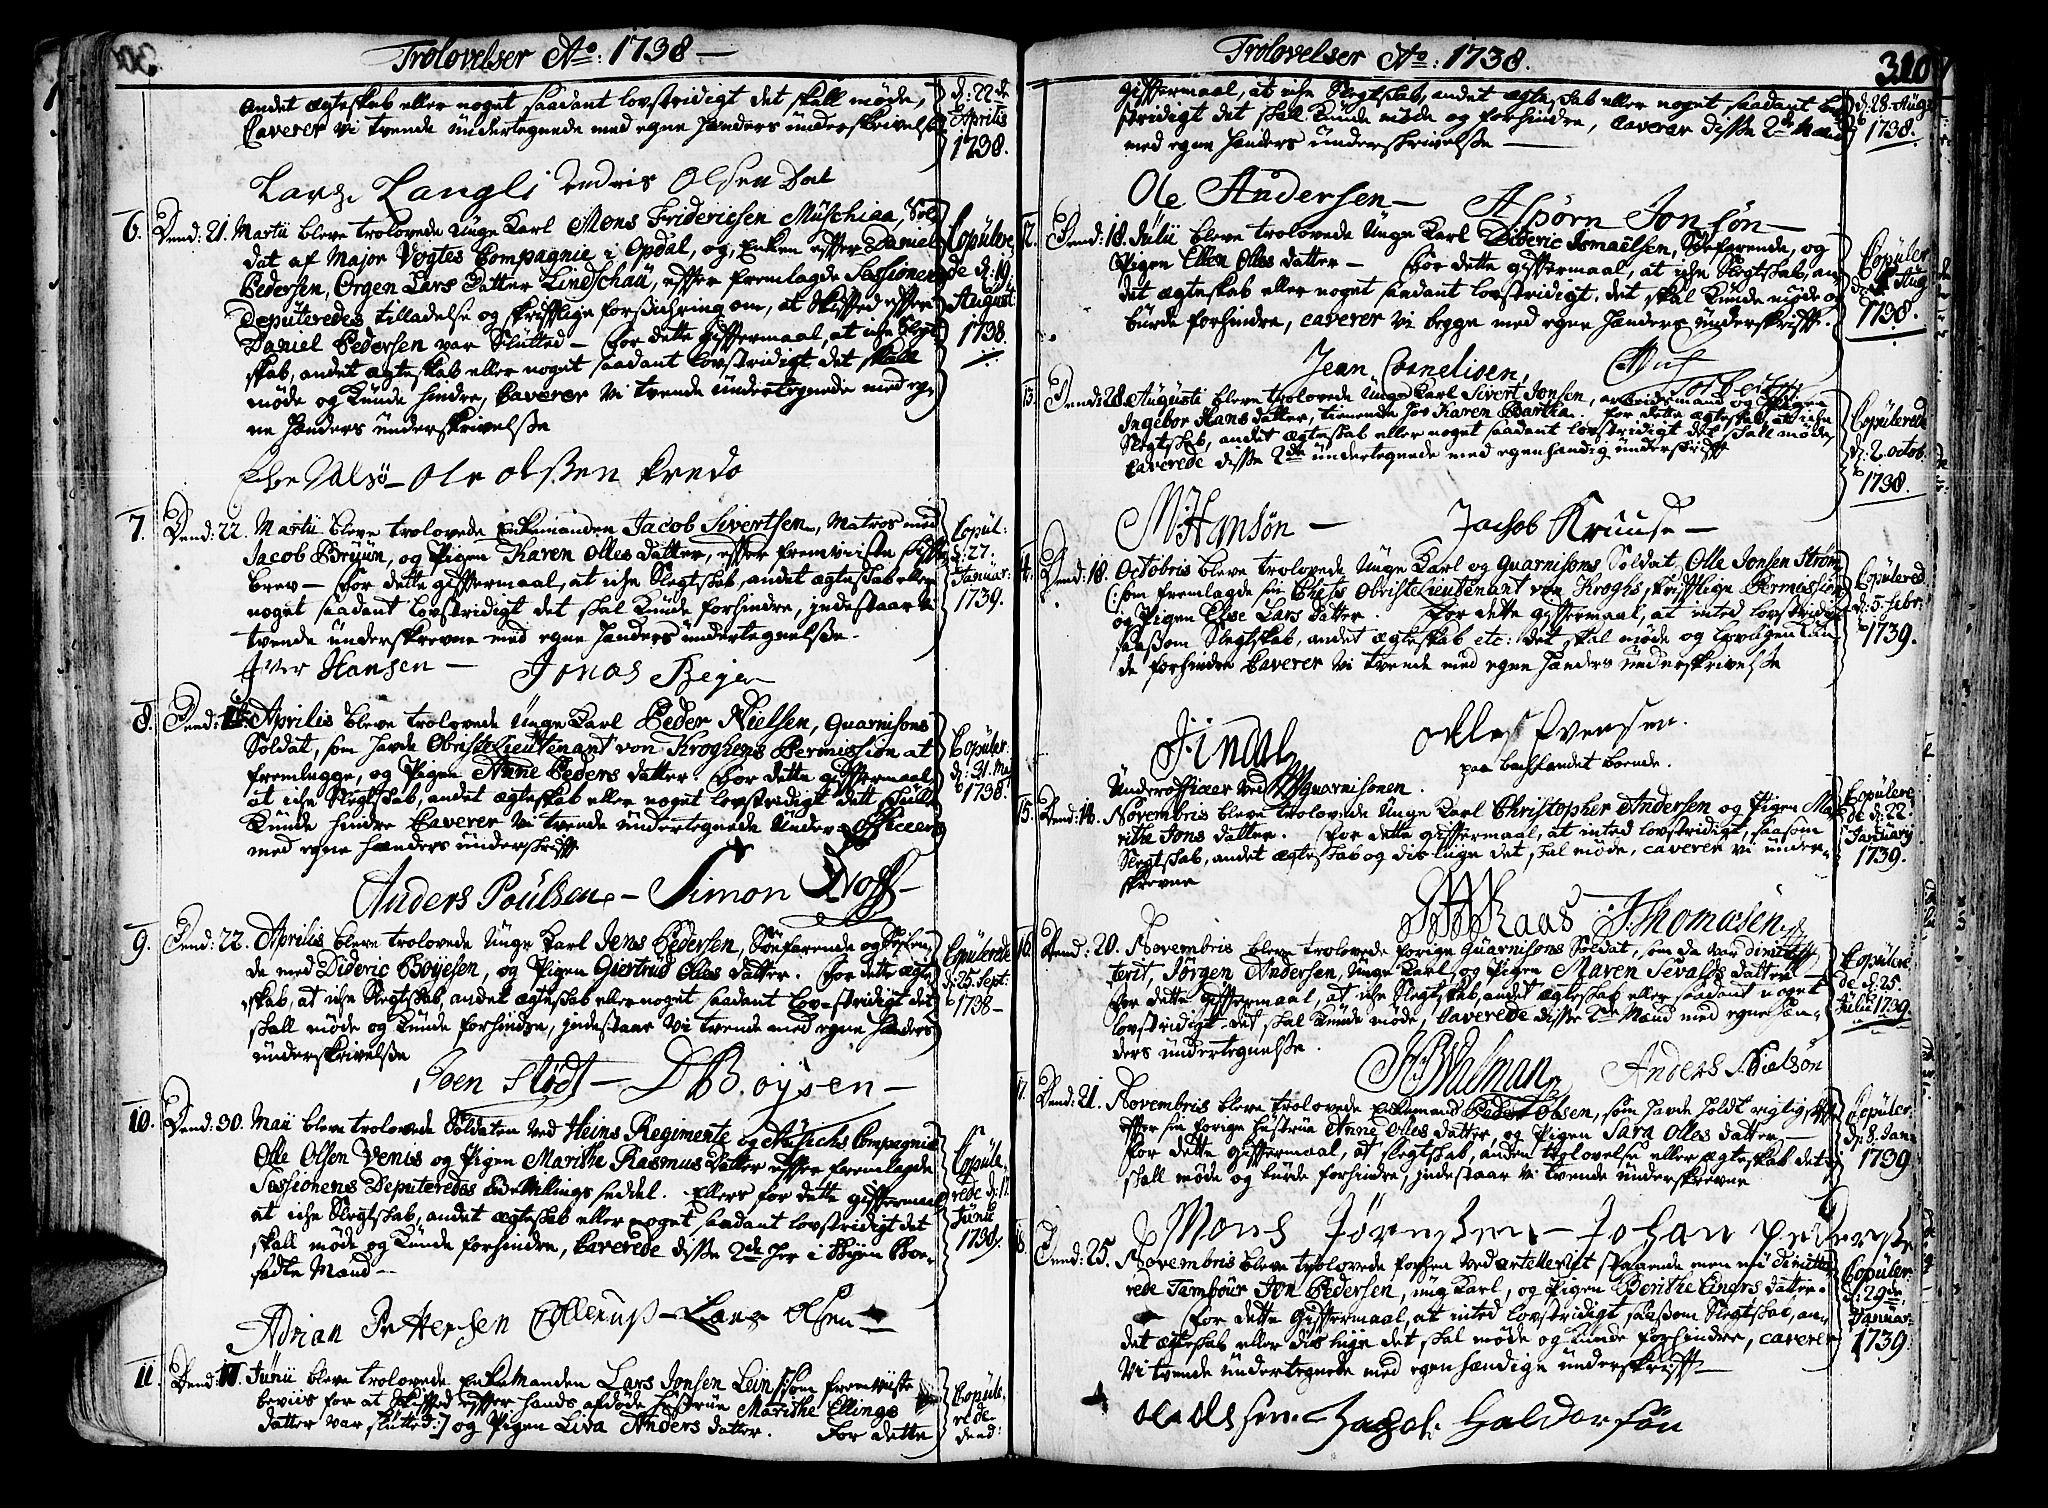 Trolovelser Ao: 1738 —
andet ægteskab eller noget saadant lovstridigt det skall møde,
Caverer vi tvende undertegnede med egne hænders underskrivelse
d: 22 de
Aprilis
1738.
Lars Langli Endris Olsen Dal
6. Dend: 21. Martii bleve trolovede Unge Karl Mons Friderichsen Müschiaa, Sol-
dat af Major Vogtes Compagnie i Opdal, og Enken efter Daniel
Pedersen, Ørgen Lars Datter Lindschau, efter fremlagde Sessionens
Deputeredes tilladelse og skriftlige forsichring om, at Skifted efter
Daniel Pedersen var Sluttet — For dette giftermaal, at iche Slegt-
skab, andet ægteskab eller noget saadant lovstridigt det skall
møde og kunde hindre, Caverer vi tvende undertegnede med eg-
ne hænders underskrivelse
Copulere
de d: 19.
August
1738.
Ole Olsen Credo
7. Dend: 22. Martii bleve trolovede Enkemanden Jacob Sivertsen, Matros med
Jacob Bruun, og Pigen Karen Olles datter, efter fremviiste Skifte
brev — For dette giftermaal, at iche Slegtskab, andet ægteskab eller
noget saadant lovstridigt det skal kunde forhindre, indestaar vi
tvende underskrevne med egne hænders undertegnelse.
Copul:
d: 27.
Januar:
1739.
Iver Hansen — Jonas Beyer
8. Dend: Aprilis bleve trolovede Unge Karl Peder Nielsen, Guarnisons
Soldat, som havde Obriste Lieutenant von Kroghens Permission at
fremlegge, og Pigen Anne Peders datter. For dette giftermaal
at iche Slegtskab, andet ægteskab eller noget lovstridigt dett skulle
kunde hindre Caverer vi tvende undertegnede Under-Officeer
med egne hænders underskrifft
Copuler:
d: 31. Maj
1738.
Anders Poulsen — Simon Hoff —
9. Dend: 22. Aprilis bleve trolovede Unge Karl Jens Pedersen, Søefarende og
de med Dideric Boyesen, og Pigen Giertrud Olles datter. For dette ægte
skab, at iche Slegtskab, andet ægteskab eller noget saadant lovstridigt det
skall møde og kunde forhindre, indestaar vi tvende med egne hænders
underskrivelse
Copulerede
d: 25. Sept:
1738 —
Soen Stødt — D Boysen —
10. Dend: 30. Maii bleve trolovede Soldaten ved Heins Regimente og Compagnie
Olle Olsen Venis og Pigen Marithe Rasmus datter efter fremlagde
Sessionens Deputeredes seddel. Ellers for dette giftermaal
at iche Slegtskab, andet ægteskab eller noget saadant lovstridigt det
skall møde og kunde forhindre, Caverede disse 2de her i Byen Boe-
satte Mænd —
Copule-
rede d: 17.
Junii
1738.
Adrian Pettersen Lars Olsen —
11. Dend: 11. Junii bleve trolovede Enkemanden Lars Jonsen Lein /: som fremviiste
beviis for at skifted efter hands afdøde hustrue Marithe Ellings
datter var sluttet :/ og Pigen Liva Anders datter. For dette
Copule-
rede
dend:
Trolovelser Ao: 1738.
310
giftermaal, at iche Slegtskab, andet ægteskab eller noget saadant lov
stridigt det skal kunde møde og forhindre, caverer disse 2de Mænd
med egne hænders underskrivelse —
d: 28. Aug:
1738.
Ole Andersen — Asbørn Jonsøn —
12. Dend: 18. Julii bleve trolovede Unge Karl Dideric Ismaelsen, Søefarende, og
Pigen Ellen Olles datter — For dette giftermaal, at iche Slegtskab, an
det ægteskab eller noget saadant lovstridigt, det skal kunde møde og
burde forhindre, caverer vi begge med egne hænders underskrifft.
Copuler
d: Aug
1738.
Jean Cornelisen,
13. Dend: 28. Augusti bleve trolovede Unge Karl Sivert Jonsen, arbeidsmand og Pigen
Ingebor Hans datter, tienende hos Karen Bartha. For dette ægteskab, at iche
Slegtskab, andet ægteskab eller noget saadant lovstridigt det skall møde,
Caverede disse 2de undertegnede med egenhændig underskrifft
Copulerede
d: 2. octob.
1738.
M: Hansøn — Jachob Kruuse —
14. Dend: 18. Octobris bleve trolovede Unge Karl og Guarnisons Soldat, Olle Jonsen Strøm
(: som fremlagde sin Chefs Obristelieutenant von Kroghs skrifftlige Permission
og Pigen Else Lars datter. For dette giftermaal, at inted lovstridigt
saasom Slegtskab, andet ægteskab etc: det skal møde og lovligen kun
de forhindre Caverer vi tvende med egne hænders underskrivelse
Copulered
d: 5. Febr:
1739.
Findal Olles Evensen.
Underofficier ved Guarnisonen. paa bachlandet boende.
15. Dend: 14. Novembris bleve trolovede Unge Karl Christopher Andersen og Pigen Ma-
rithe Jons datter. For dette giftermaal, at inted lovstridigt, saasom
Slegtskab, andet ægteskab og deslige det skal møde, caverer vi under-
skrevne
Copulere
de d: 22.
Januarij
1739.
Raas Thomasen
16. Dend: 20. Novembris bleve trolovede forige Guarnisons Soldat, som da var dimit-
terit, Jørgen Andersen, Unge Karl, og Pigen Maren Sivals datter —
For dette giftermaal, at iche Slegtskab, andet ægteskab eller saadant noget
lovstridigt det skal kunde møde, Caverede disse 2de Mænd med egne hæn-
ders undertegnelse.
Copulere
de d: 25.
Julii 1739.
Walman Anders Nielsøn
17. Dend: 21. Novembris bleve trolovede Enkemand Peder Olsen, som havde holdt rigtig skifte
efter sin forige hustrue Anne Olles datter, og Pigen Sara Olles datter —
For dette giftermaal, at slegtskab, anden trolovelse eller ægteskab det ej
skall møde og burde forhindre, indestaar vi tvende underskrevne
Copuler.
d: 8. Jan:
1739
Mons Jørensen — Johan Pederse
18. Dend: 25. Novembris bleve trolovede forhen ved artelleriet staaende men nu dimitte
rede Tambour Jon Pedersen, ung Karl, og Pigen Berithe Einers datter.
— For dette Giftermaal, at inted lovstridigt saasom Slegtskab, an-
det ægteskab eller deslige det skal møde og kunde forhindre, caverer
vi tvende undertegnede med egenhændige underskrifft —
Copuler.
d: 29de
Januar:
1739.
Ole Olsen. Jacob Haldorsøn